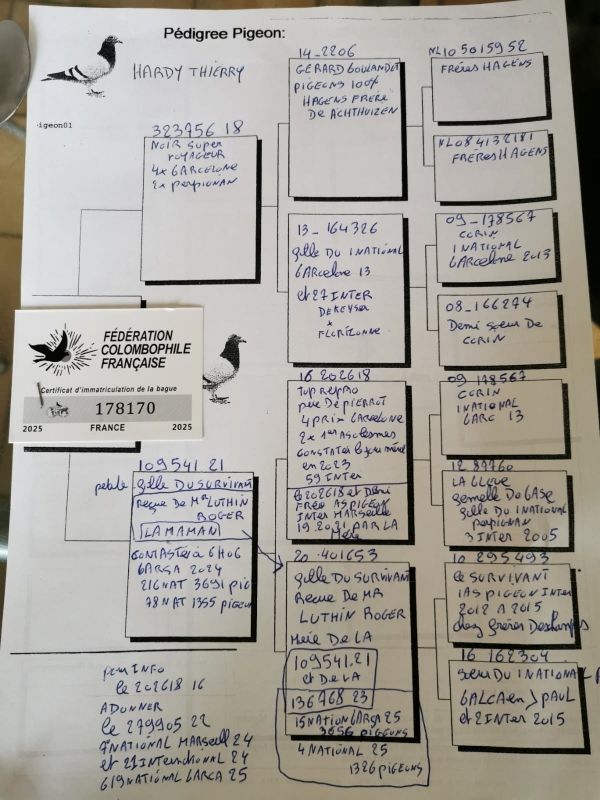 Pédigree Pigeon:
HARDY THIERRY
igeon01
323756 18
NOIR SUPER
VOYAGEUR
4x BARCELONE
2x perpignan
14-2206
GÉRARD
PIGEONS 100%
HAGENS FRERE
DE ACHTHUIZEN
NL10 5015952
FRÈRES HAGENS
NL08 4132181
FRÈRES HAGENS
13-164326
fille DU 1NATIONAL
BARCELONE 13
et 27 INTER
DEKEYSER
x
FLORIZOONE
09-178567
CORIN
1 NATIONAL
BARCELONE 2013
08-166274
Demi soeur De
CORIN
FÉDÉRATION
COLOMBOPHILE
FRANÇAISE
Certificat d'immatriculation de la bague
178170
2025 FRANCE 2025
16 202618
TOP REPRO
père De PIERROT
4 PRIX BARCELONE
2x 1er
CONSTATER le jour même
en 2023
59 INTER
le 202618 et Demi
Frère AS PIGEON
INTER MARSEILLE
19.20.21 PAR LA
Mère
09 178567
CORIN
1NATIONAL
BARC 13
12 87760
fille DU 1NATIONAL
perpignan
3 INTER 2005
109541 21
fille DU SURVIVANT
Reçue De Mr LUTHIN
ROGER
LA MAMAN
à 6H06
BARÇA 2024
216 NAT 3691 pig
78 NAT 1355 pigeons
20-401653
fille DU SURVIVANT
Reçue De MR
LUTHIN ROGER
Mère De LA
109541.21
et De LA
136768 23
15 NATION BARÇA 25
3656 pigeons
4 NATIONAL 25
1326 pigeons
10 295493
LE SURVIVANT
1AS PIGEON INTER
2012 A 2015
chez frères Deschamps
16 162304
soeur DU 1NATIONAL
PAUL
et 2 INTER 2015
pour INFO
le 202618 16
A DONNER
le 279905 22
7 NATIONAL MARSEILLE 24
et 21 INTERNATIONAL 24
619 NATIONAL BARCA 25